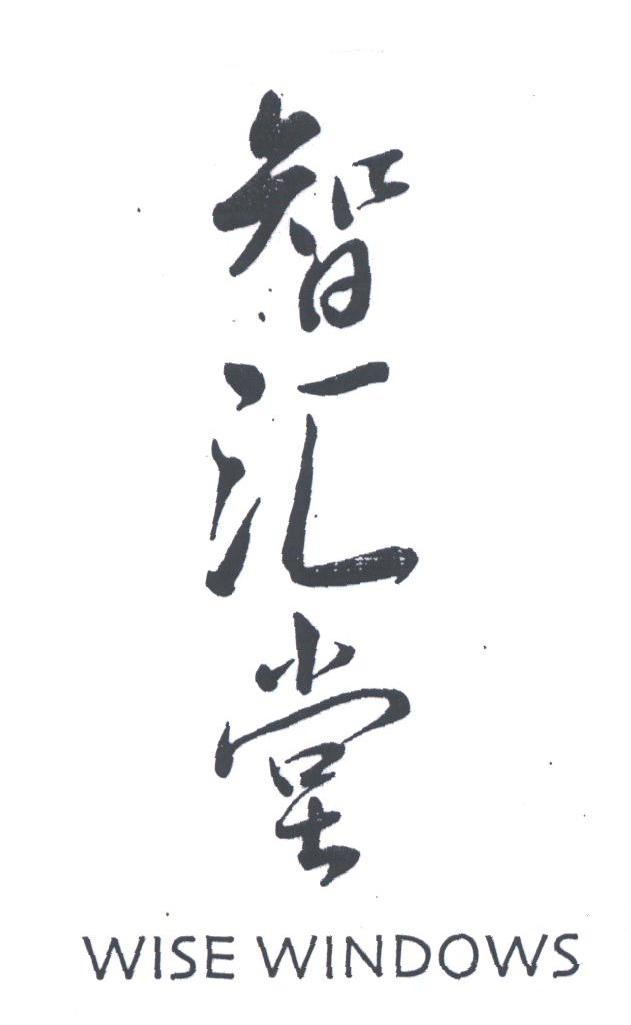 智汇堂
WISE WINDOWS